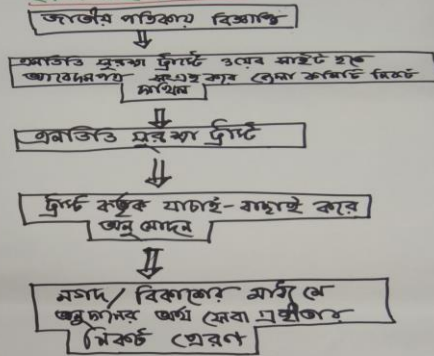 জাতীয় পত্রিকায় বিজ্ঞপ্তি
এনডিডি সুরক্ষা ট্রাস্টে ওয়েব সাইট হতে
আবেদনপত্র সংগ্রহ করে জেলা কমিটি নিকট
দাখিল
এনডিডি সুরক্ষা ট্রাস্ট
ট্রাস্ট কর্তৃক যাচাই-বাছাই করে
অনুমোদন
নগদ/বিকাশের মাধ্যমে
অনুদানের অর্থ সেবা গ্রহীতার
নিকট প্রেরণ